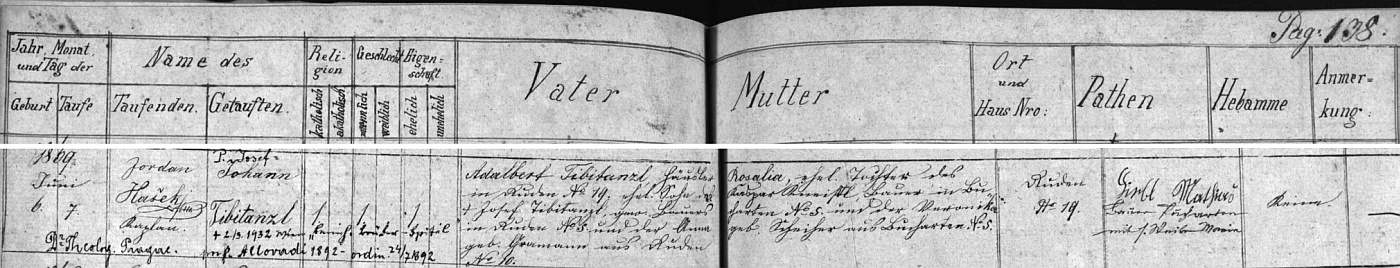 Pag: 138.
Jahr, Monat und Tag der
Name des
Religion
Geschlecht
Eigenschaft
Vater
Mutter
Ort und Haus Nro:
Pathen
Hebamme
Anmerkung:
Geburt
Taufe
Taufenden.
Getauften.
katholisch
akatholisch
männlich
weiblich
ehelich
unehelich
1869.
Juni
6. 7.
Jordan
Hašek
Kaplan
P. Josef
Johann
Tibitanzl
+ 2/3. 1932 Wien
1 1 1
Dr Theolog. Pragae. prof. Altovadi 1892 - ordin. 24/7 1892
Adalbert Tibitanzl, Häusler
in Ruden No 19, ehel. Sohn des
+ Josef Tibitanzl,
in Ruden No 5. und der Anna
geb. Gramann aus Ruden
No 10.
Rosalia, ehel. Tochter des
Kaspar Kneißl Bauer in Bu-
charten No 5. und der Veronika
geb. Scheiher aus Bucharten No 5.
Ruden
No 19.
mit s. Weibe Maria